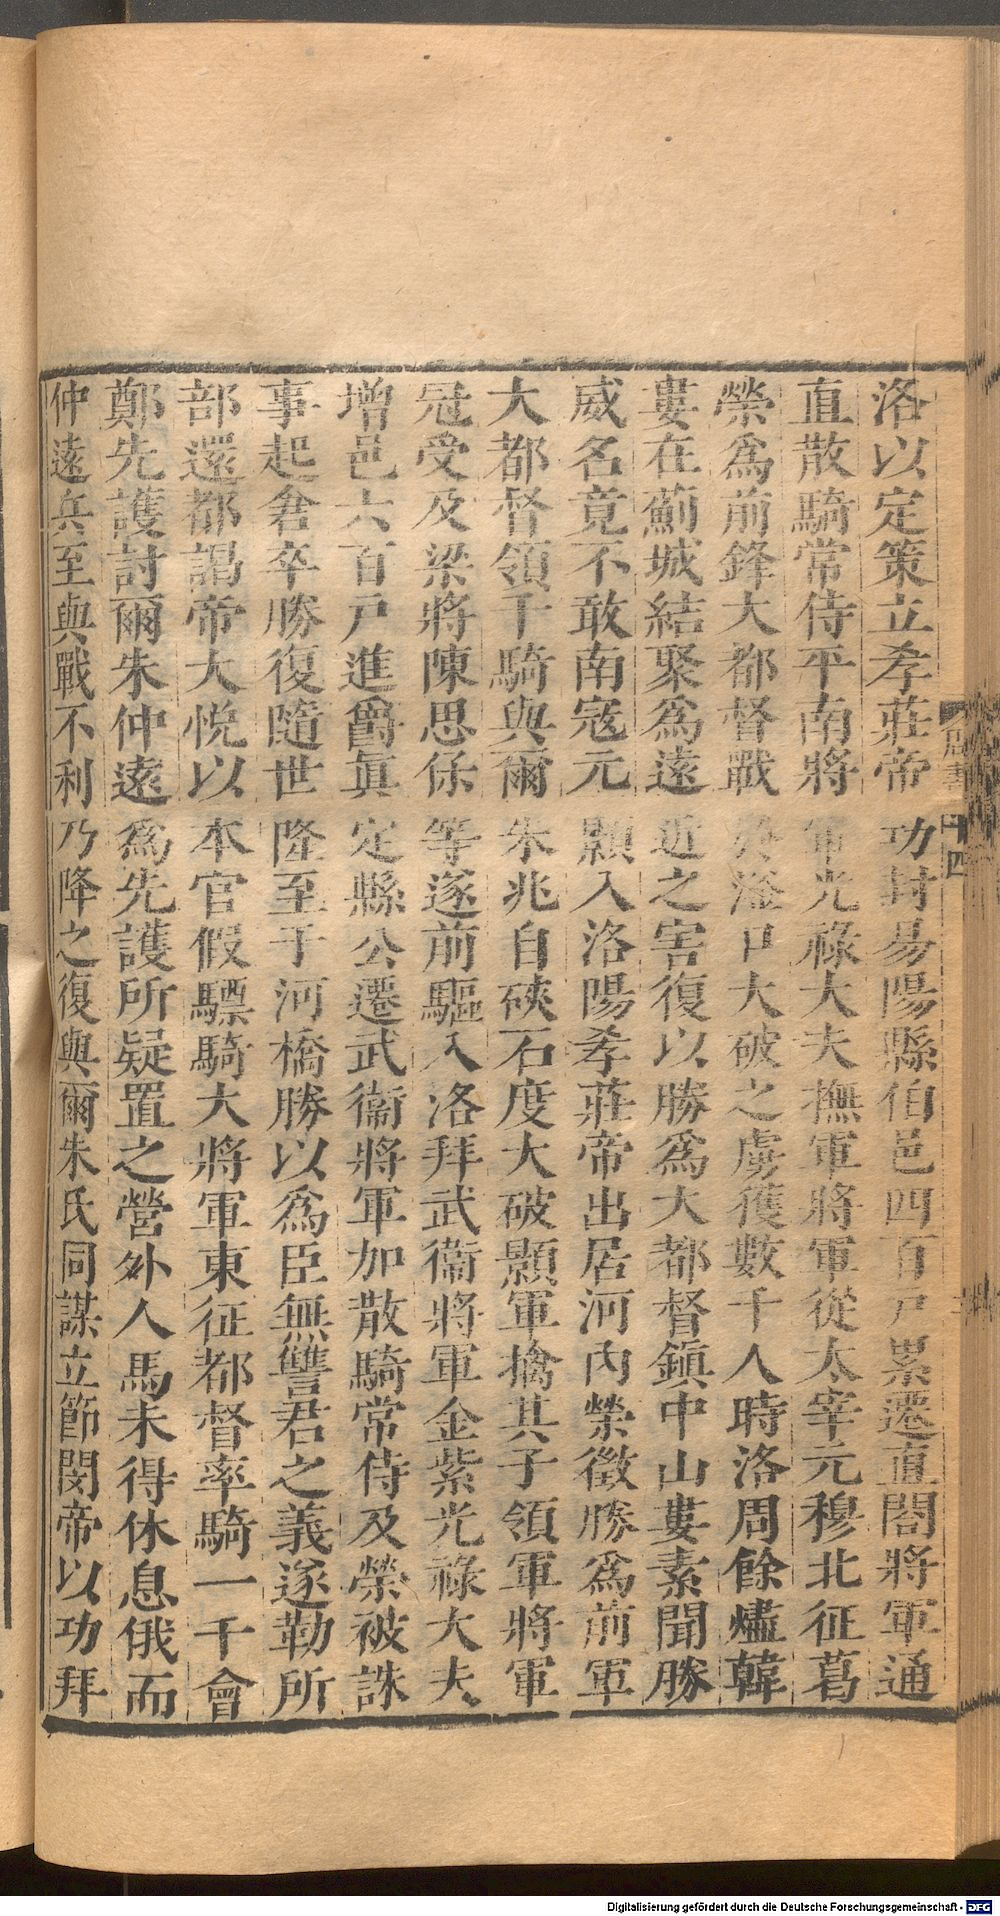 洛以定策立孝莊帝功封易陽縣伯邑四百戸累遷直閤將軍通
直散騎常侍平南將軍光祿大夫撫軍將軍從太宰元穆北征葛
榮爲前鋒大都督戰於滏口大破之虜獲數千人時洛周餘燼韓
婁在薊城結聚爲遠近之害復以勝爲大都督鎮中山婁素聞勝
威名竟不敢南寇元顥入洛陽孝莊帝出居河內榮徵勝爲前軍
大都督領千騎與爾朱兆自硤石度大破顥軍擒其子領軍將軍
冠受及梁將陳思保等遂前驅入洛拜武衞將軍金紫光祿大夫
增邑六百戸進爵眞定縣公遷武衞將軍加散騎常侍及榮被誅
事起倉卒勝復隨世隆至于河橋勝以爲臣無讐君之義遂勒所
部還都謁帝大悅以本官假驃騎大將軍東征都督率騎一千會
鄭先護討爾朱仲遠爲先護所疑置之營外人馬未得休息俄而
仲遠兵至與戰不利乃降之復與爾朱氏同謀立節閔帝以功拜
周書
十四
Digitalisierung gefördert durch die Deutsche Forschungsgemeinschaft - DFG